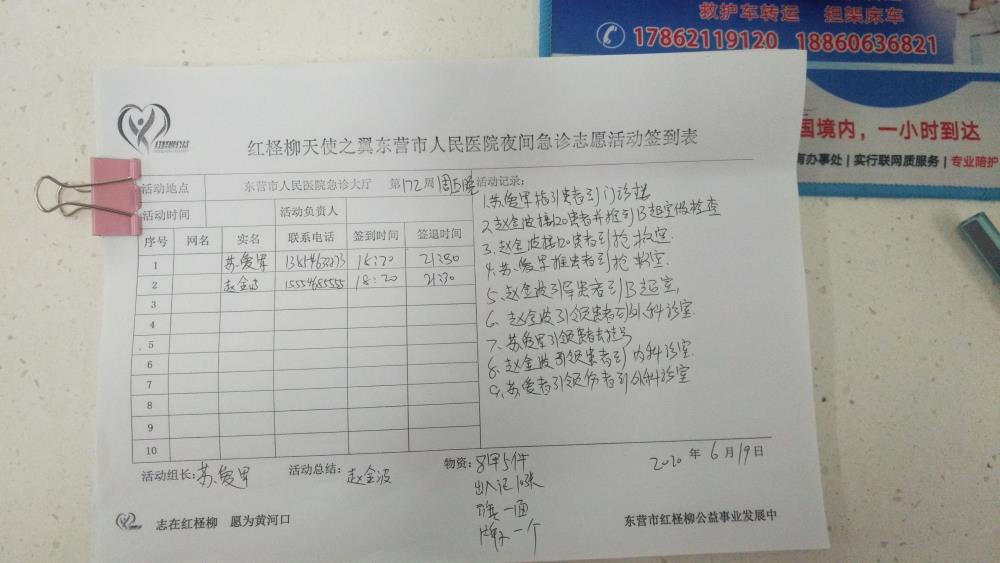 救护车转运 担架床车
17862119120 18860636821
国境内，一小时到达
有办事处 | 实行联网质服务 | 专业陪护
红柽柳天使之翼东营市人民医院夜间急诊志愿活动签到表
活动地点 东营市人民医院急诊大厅 第172周周五晚 活动记录：
活动时间 活动负责人
序号 网名 实名 联系电话 签到时间 签退时间
1 苏爱军 18:20 21:30
2 赵金波 15554685555 18:20 21:30
3
4
5
6
7
8
9
10
1.苏爱军指引患者到门诊楼
2.赵金波接120患者并推到B超室做检查
3.赵金波接120患者到抢救室.
4.苏爱军推患者到抢救室.
5.赵金波引导患者到B超室.
6.赵金波引领患者到外科诊室.
7.苏爱军引领患者去挂号
8.赵金波引领患者到内科诊室.
9.苏爱者引领伤者到外科诊室
活动组长：苏爱军 活动总结：赵金波 物资：马甲5件
出入记10张
旗一面
牌子一个
2020年6月19日
志在红柽柳 愿为黄河口
东营市红柽柳公益事业发展中